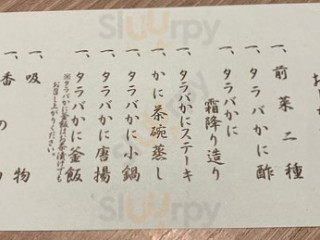 一、前菜二種
一、タラバかに酢
一、タラバかに
霜降り造り
一、タラバかにステーキ
一、かに茶碗蒸し
一、タラバかに小鍋
一、タラバかに唐揚
一、タラバかに釜飯
※タラバかに釜飯はお茶漬けでも
お召し上がりください。
一、吸物
一、香の
Sluurpy
Sluurpy